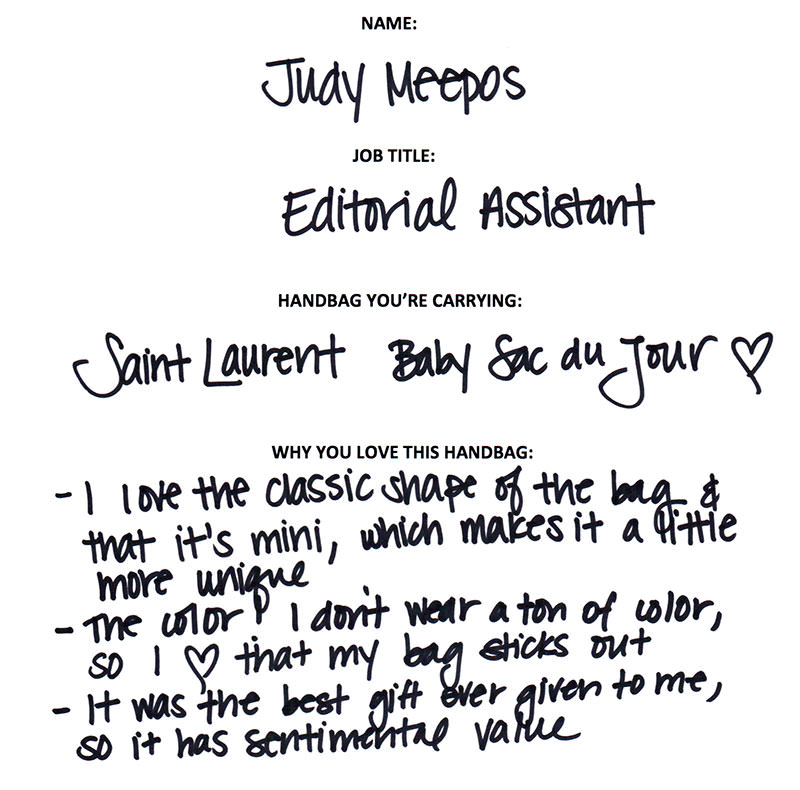 NAME:
Judy Meepos
JOB TITLE:
Editorial Assistant
HANDBAG YOU'RE CARRYING:
Saint Laurent Baby Sac du Jour ♡
WHY YOU LOVE THIS HANDBAG:
- I love the classic shape of the bag &
that it's mini, which makes it a little
more unique
- The color! I don't wear a ton of color,
so I ♡ that my bag sticks out
- It was the best gift ever given to me,
so it has sentimental value